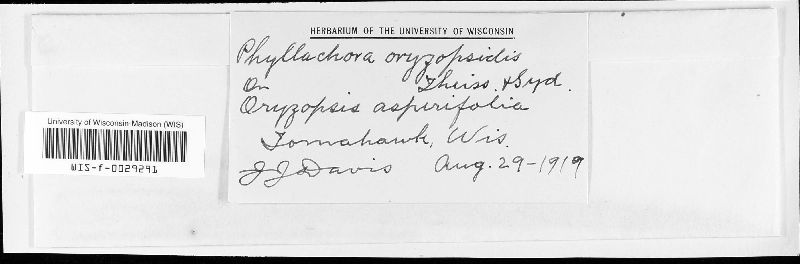 HERBARIUM OF THE UNIVERSITY OF WISCONSIN
Phyllachora oryzopsidis
On Theiss. & Syd.
Oryzopsis asperifolia
Tomahawk, Wis.
J J Davis Aug. 29-1919
University of Wisconsin-Madison (WIS)
WIS-f-0029291